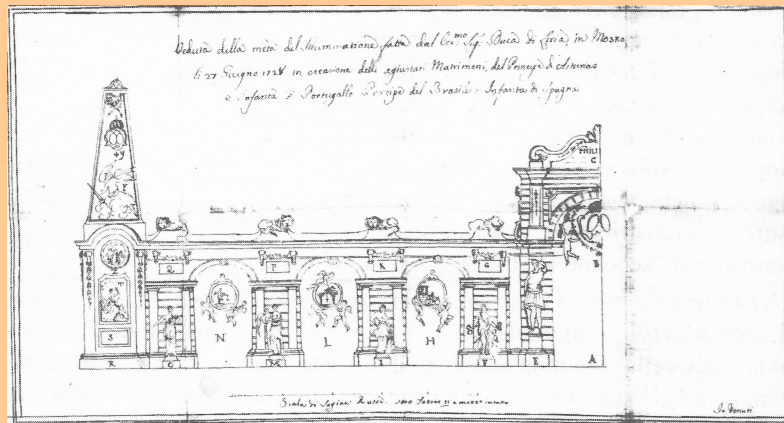 Veduta della metà del Illuminatione fatta dal Ecc.mo Sig. Duca di Liria, in Mosko,
li 27 Giugno 1728 in occasione delli agiustati Matrimoni, del Principe d'Asturias
e Infanta di Portugallo Principe del Brasile e Infanta di Spagna
C
B
Q P K G
S N L H
R O M I F E A
Scala di Sagiari Russi